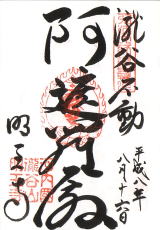 瀧谷不動
平成八年
八月十六日
阿遮羅殿
明王寺